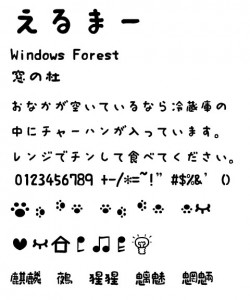 えるまー
Windows Forest
窓の杜
おなかが空いているなら冷蔵庫の
中にチャーハンが入っています。
レンジでチンして食べてください。
0123456789 +-/*=~!" #$%&' ()
麒麟 鵺 猩猩 魑魅 魍魎